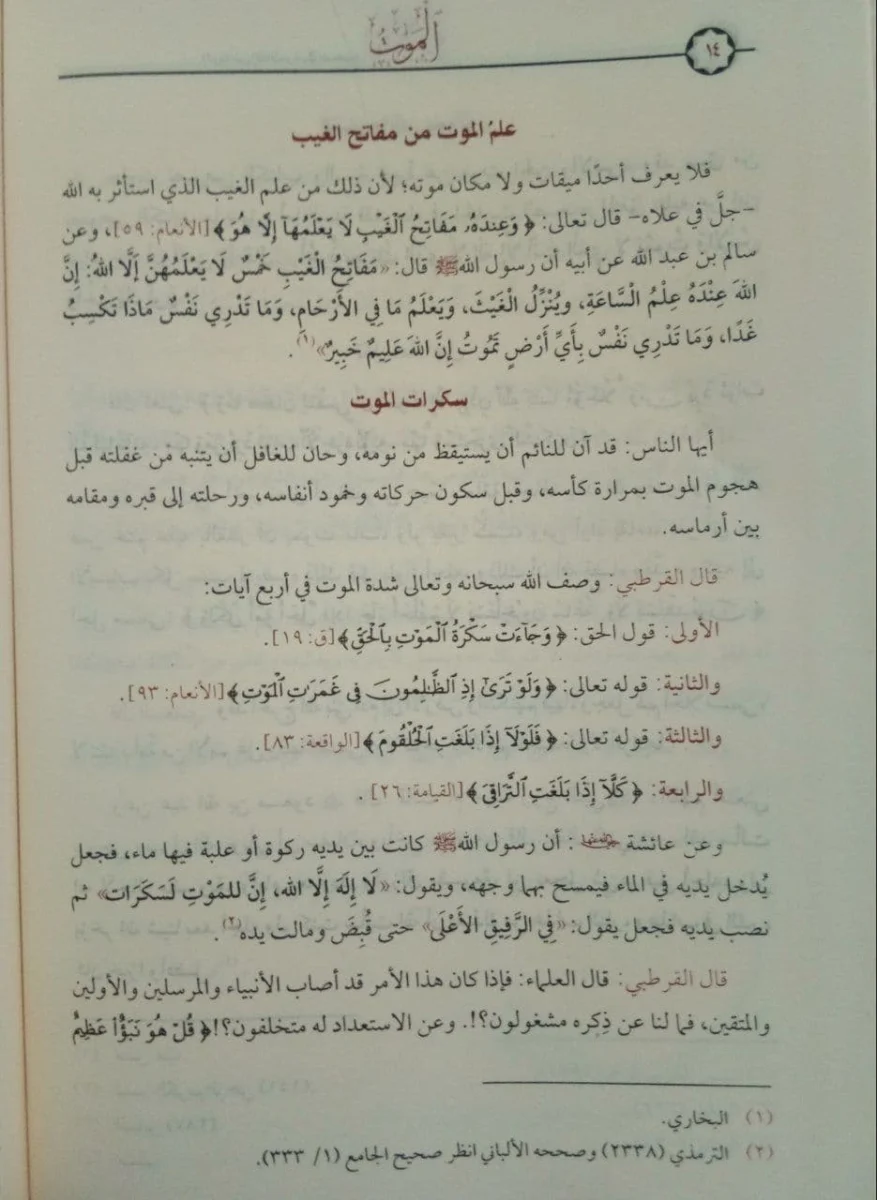 الموت
١٤
علمُ الموت من مفاتح الغيب
فلا يعرف أحدًا ميقات ولا مكان موته؛ لأن ذلك من علم الغيب الذي استأثر به الله
-جلَّ في علاه- قال تعالى: ﴿ وَعِندَهُۥ مَفَاتِحُ ٱلْغَيْبِ لَا يَعْلَمُهَآ إِلَّا هُوَ ﴾[الأنعام: ٥٩]، وعن
سالم بن عبد الله عن أبيه أن رسول الله ﷺ قال: «مَفَاتِحُ الْغَيْبِ خَمْسٌ لَا يَعْلَمُهُنَّ إَلَّا اللهُ: إِنَّ
اللهَ عِنْدَهُ عِلْمُ السَّاعَةِ، ويُنْزِّلُ الْغَيْثَ، وَيَعْلَمُ مَا فِي الأَرْحَامِ، وَمَا تَدْرِي نَفْسٌ مَاذَا تَكْسِبُ
غَدًا، وَمَا تَدْرِي نَفْسٌ بِأَيِّ أَرْضٍ تَمُوتُ إِنَّ اللهَ عَلِيمٌ خَبِيرٌ»(١).
سكرات الموت
أيها الناس: قد آن للنائم أن يستيقظ من نومه، وحان للغافل أن يتنبه مْن غفلته قبل
هجوم الموت بمرارة كأسه، وقبل سكون حركاته وخمود أنفاسه، ورحلته إلى قبره ومقامه
بين أرماسه.
قال القرطبي: وصف الله سبحانه وتعالى شدة الموت في أربع آيات:
الأولى: قول الحق: ﴿ وَجَآءَتْ سَكْرَةُ ٱلْمَوْتِ بِٱلْحَقِّ ﴾[ق: ١٩].
والثانية: قوله تعالى: ﴿ وَلَوْ تَرَىٰٓ إِذِ ٱلظَّـٰلِمُونَ فِى غَمَرَٰتِ ٱلْمَوْتِ ﴾[الأنعام: ٩٣].
والثالثة: قوله تعالى: ﴿ فَلَوْلَآ إِذَا بَلَغَتِ ٱلْحُلْقُومَ ﴾[الواقعة: ٨٣].
والرابعة: ﴿ كَلَّآ إِذَا بَلَغَتِ ٱلتَّرَاقِىَ ﴾[القيامة: ٢٦] .
وعن عائشة رضي الله عنها : أن رسول الله ﷺ كانت بين يديه ركوة أو علبة فيها ماء، فجعل
يُدخل يديه في الماء فيمسح بهما وجهه، ويقول: «لَا إِلَهَ إِلَّا الله، إِنَّ للمَوْتِ لَسَكَرَات» ثم
نصب يديه فجعل يقول: «فِي الرَّفِيقِ الأَعْلَى» حتى قُبِضَ ومالت يده(٢).
قال القرطبي: قال العلماء: فإذا كان هذا الأمر قد أصاب الأنبياء والمرسلين والأولين
والمتقين، فما لنا عن ذِكره مشغولون؟!. وعن الاستعداد له متخلفون؟!﴿ قُلْ هُوَ نَبَؤٌاْ عَظِيمٌ
(١) البخاري.
(٢) الترمذي (٢٣٣٨) وصححه الألباني انظر صحيح الجامع (١/ ٣٣٣).